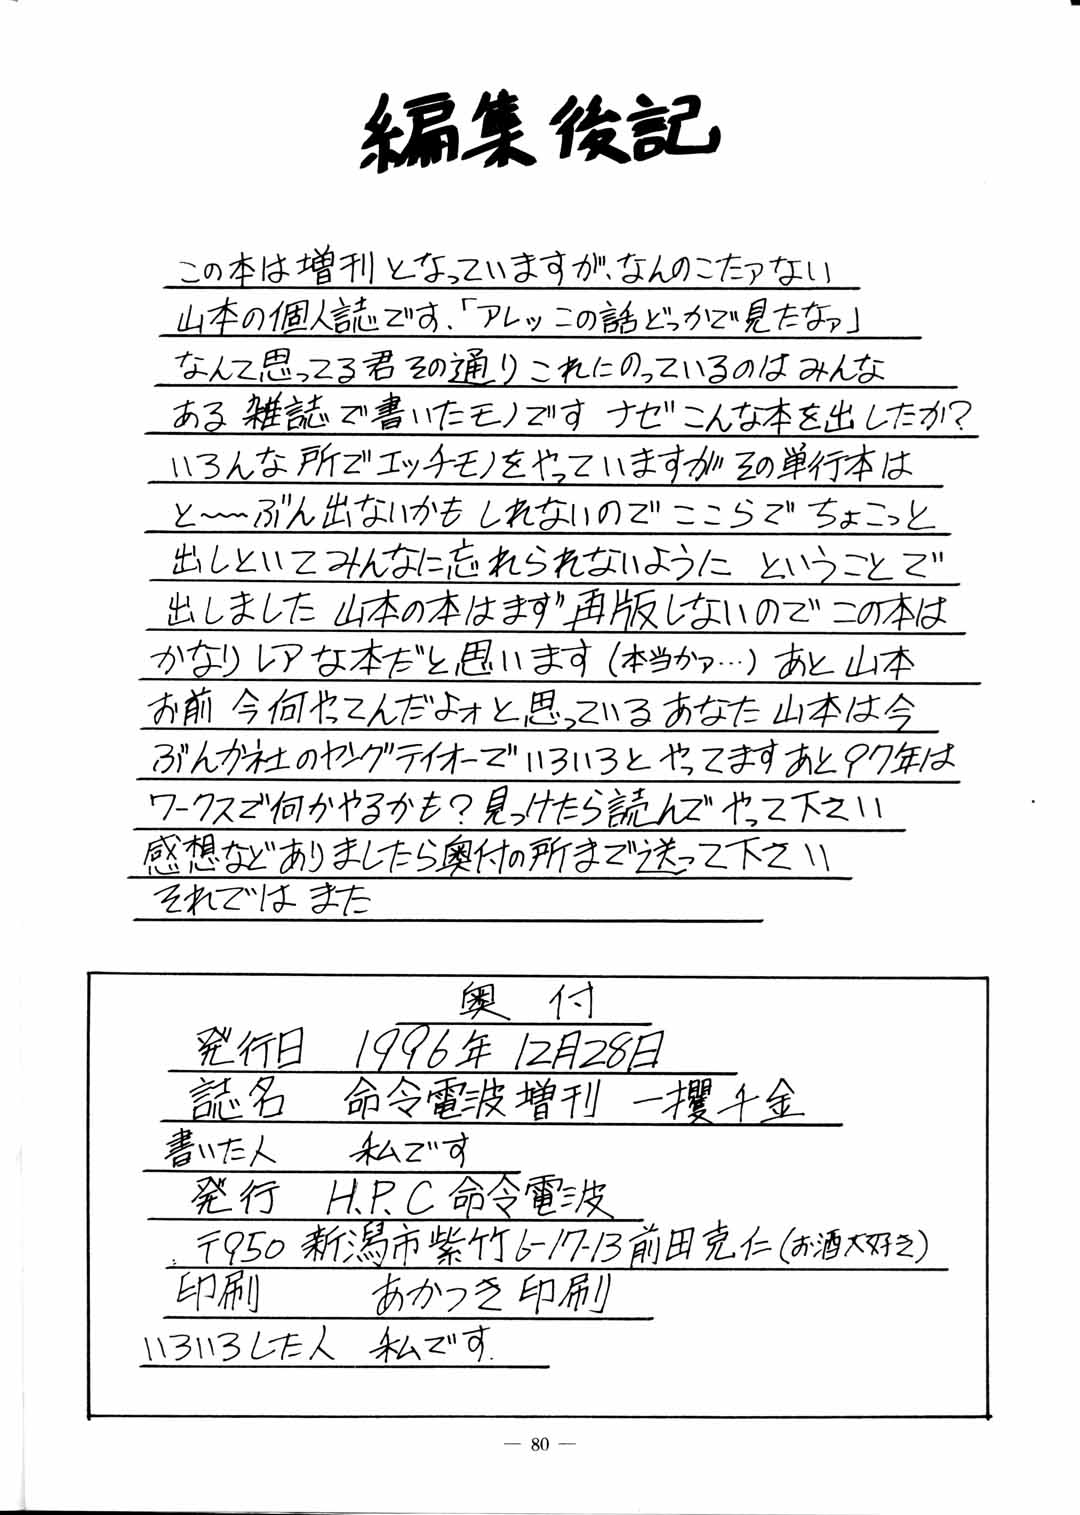 編集後記
この本は増刊となっていますが、なんのこたァない
山本の個人誌です、「アレッこの話どっかで見たなァ」
なんて思ってる君その通りこれにのっているのはみんな
ある雑誌で書いたモノです ナゼこんな本を出したか?
いろんな所でエッチモノをやっていますがその単行本は
と〜〜ぶん出ないかもしれないのでここらでちょこっと
出しといてみんなに忘れられないように ということで
出しました 山本の本はまず再版しないのでこの本は
かなりレアな本だと思います(本当かァ…)あと山本
お前 今何やってんだよォと思っているあなた山本は今
ぶんか社のヤングテイオーでいろいろとやってますあと97年は
ワークスで何かやるかも?見つけたら読んでやって下さい
感想などありましたら奥付の所まで送って下さい
それではまた
奥 付
発行日 1996年 12月28日
誌名 命令電波増刊 一攫千金
書いた人 私です
発行 H.P.C 命令電波
〒950 新潟市紫竹6-17-13前田克仁(お酒大好き)
印刷 あかつき印刷
いろいろした人 私です.
— 80 —